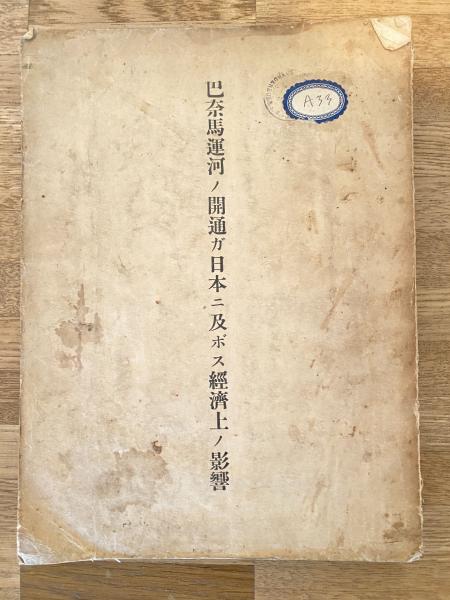 巴奈馬運河ノ開通ガ日本ニ及ボス經濟上ノ影響
A33